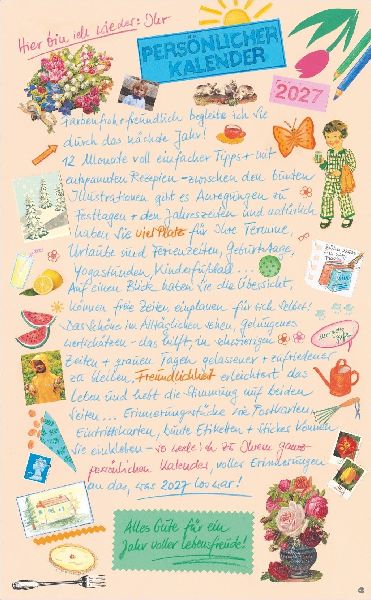 Hier bin ich wieder: Ihr
PERSÖNLICHER
KALENDER
2027
Farbenfroh + freundlich begleite ich Sie
durch das nächste Jahr!
12 Monate voll einfacher Tipps + mit
entspannten Rezepten – zwischen den bunten
Illustrationen gibt es Anregungen zu
Festtagen + den Jahreszeiten und natürlich
haben Sie viel Platz für Ihre Termine,
Urlaube und Ferienzeiten, Geburtstage,
Yogastunden, Kinderfußball ...
Auf einen Blick haben Sie die Übersicht,
können freie Zeiten einplanen für sich selbst!
Das Schöne im Alltäglichen sehen, gelungenes
wertschätzen – das hilft, in schwierigen
Zeiten + grauen Tagen gelassener + zufriedener
zu bleiben. Freundlichkeit erleichtert das
Leben und hebt die Stimmung auf beiden
Seiten ... Erinnerungsstücke wie Postkarten,
Eintrittskarten, bunte Etiketten + Sticker können
Sie einkleben – so werde ich zu Ihrem ganz
persönlichen Kalender, voller Erinnerungen
an das, was 2027 los war!
Alles Gute für ein
Jahr voller Lebensfreude!